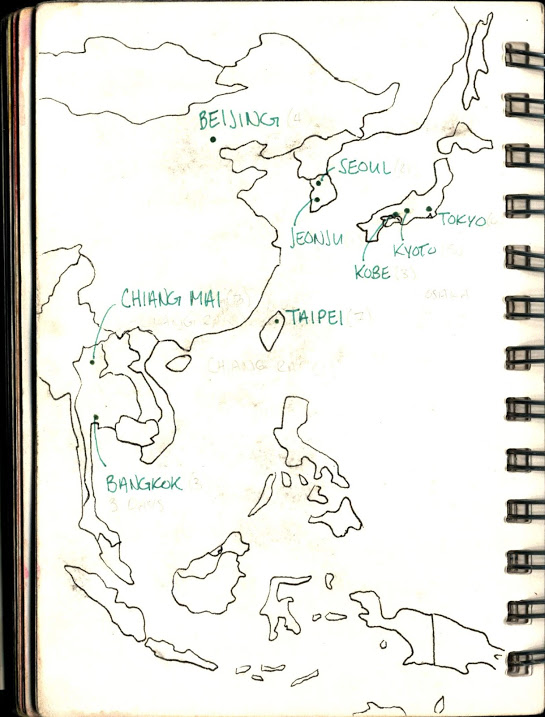 BEIJING (4
SEOUL
JEONJU
TOKYO
KYOTO
KOBE (3)
OSAKA
CHIANG MAI (3)
TAIPEI (2)
CHIANG RAI
BANGKOK 3
3 DAYS